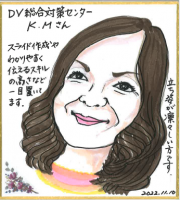 DV総合対策センター
K.Mさん
スライド作成や
わかりやすく
伝えるスキル
の高さなど
一目置いて
ます。
立ち姿が凛々しい方です。
2022.11.10